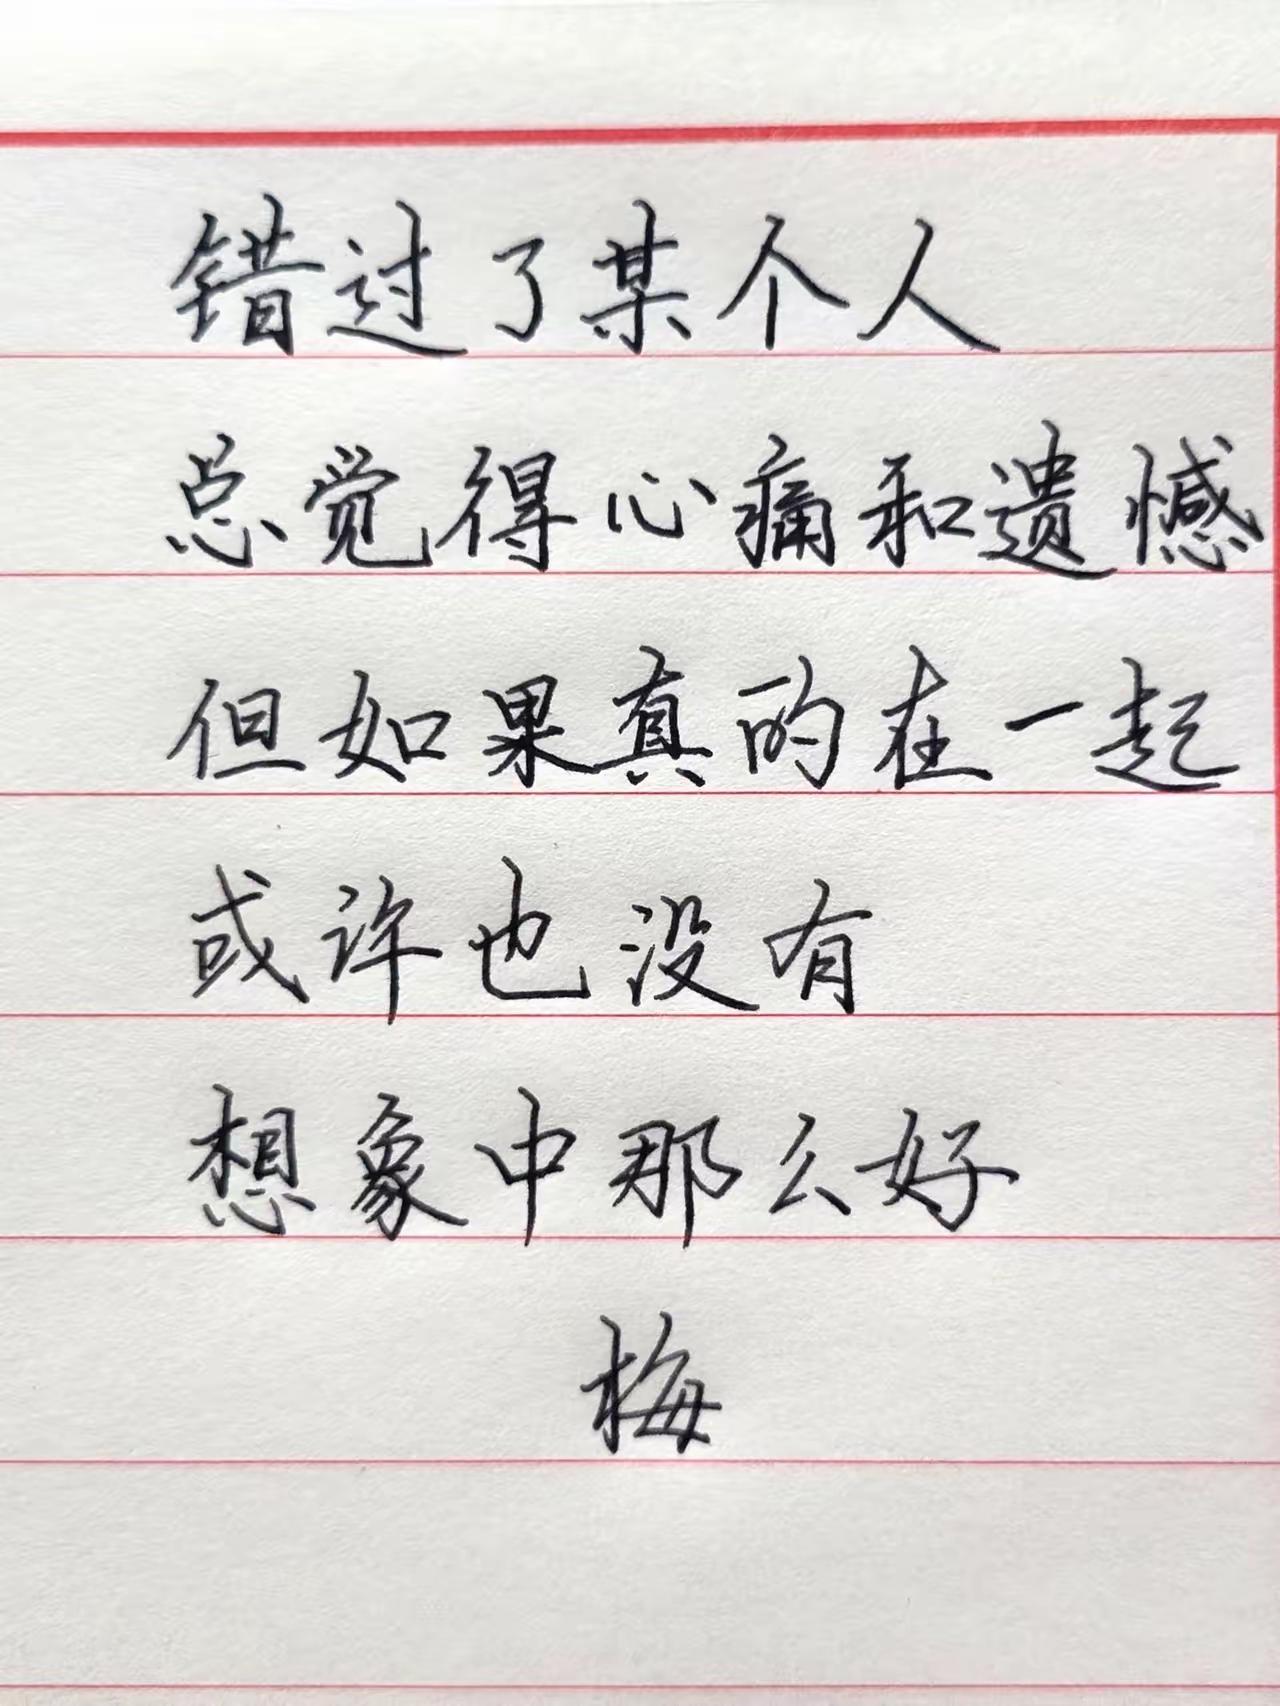 错过了某个人
总觉得心痛和遗憾
但如果真的在一起
或许也没有
想象中那么好
梅